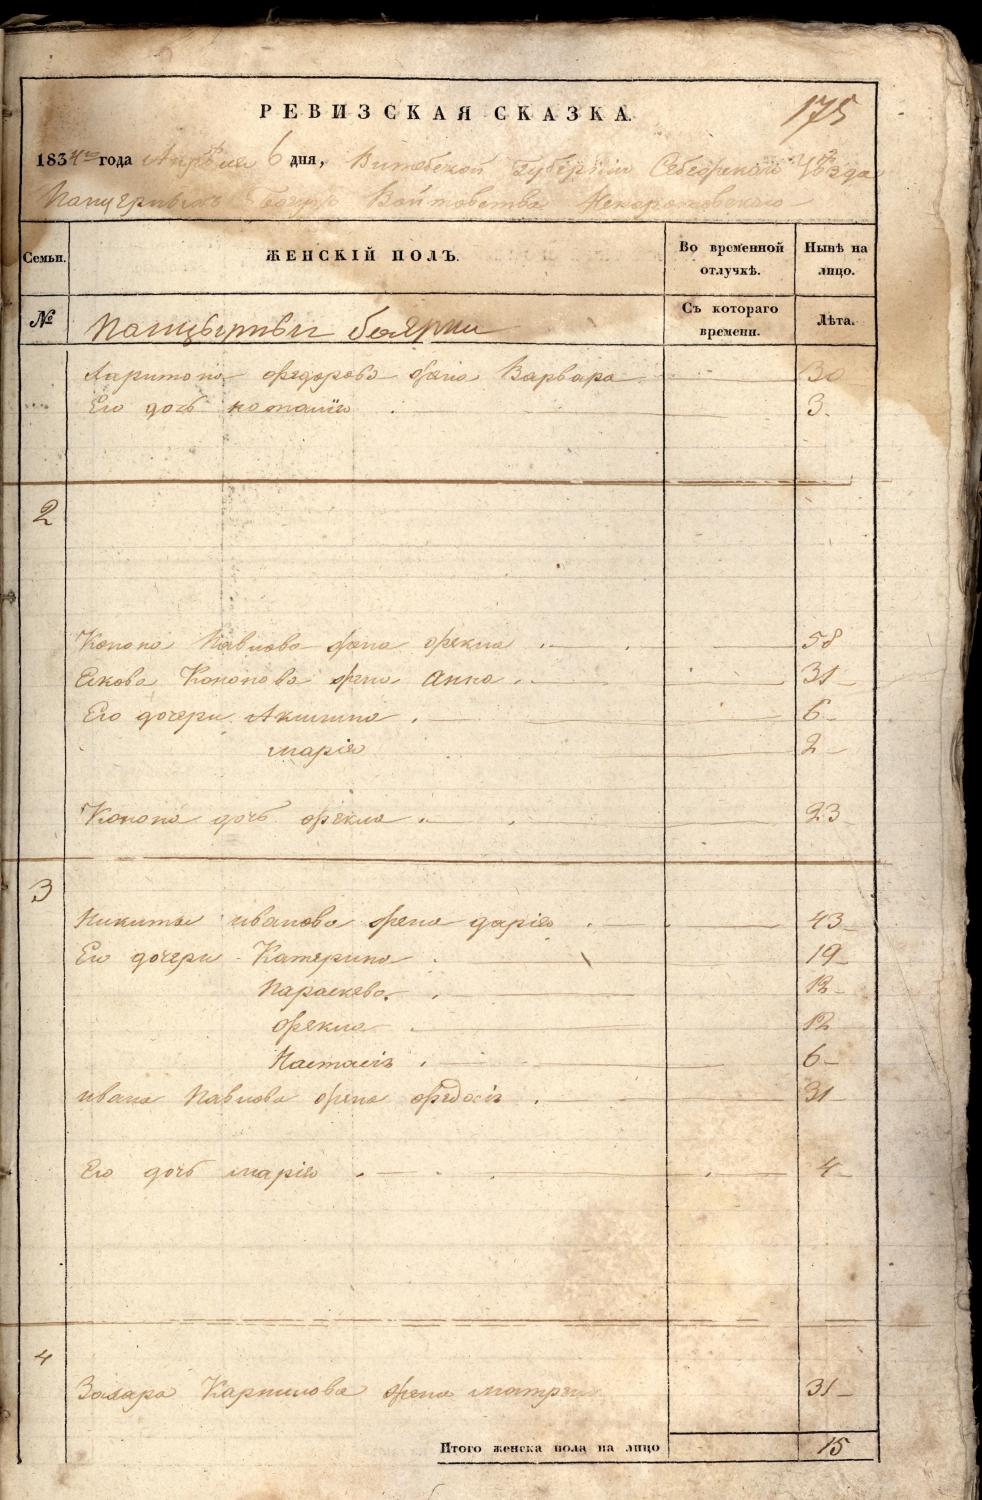 РЕВИЗСКАЯ СКАЗКА.
175
1834го года Апреля 6 дня, Витебской Губернiи Себежскаго Уезда
Панцернымъ Бояръ Войтовства Некороновскаго
Семьи. ЖЕНСКІЙ ПОЛЪ. Во временной отлучкѣ. Нынѣ на лицо.
№ Панцырныи боярии Съ котораго времени. Лѣта.
Харитона федорова жена Варвара 30
Его дочь наталiя 3
2
Конона Павлова жена фекла 58
Якова Кононова жена Анна 31
Его дочери Акилина 6
марiя 2
Конона дочь фекла 23
3
Никиты иванова жена дарiя 43
Его дочери Катерина 19
Параскева 13
фекла 12
Настасiя 6
ивана Павлова жена федосiя 31
Его дочь марiя 4
4
Захара Карпилова жена матрена 31
Итого женска пола на лицо 15